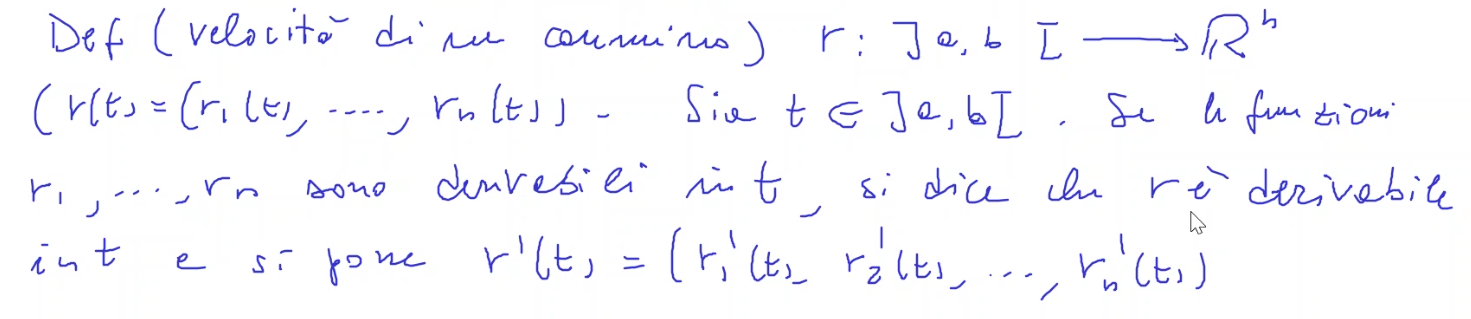 Def (velocità di un cammino) r: ]a, b [ ⟶ ℝⁿ
(r(t) = (r₁(t), ...., rₙ(t)) - Sia t ∈ ]a, b[ . Se le funzioni
r₁, ..., rₙ sono derivabili in t, si dice che r è derivabile
in t e si pone r'(t) = (r₁'(t), r₂'(t), ..., rₙ'(t))